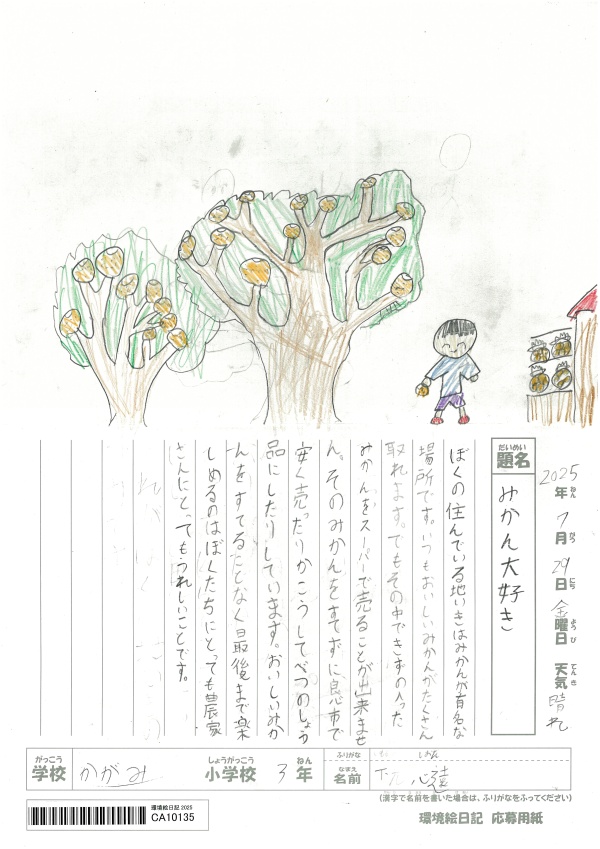 だいめい
題名
みかん大好き
2025年 7月 29日 金曜日 天気 晴れ
ねん がつ にち ようび てんき
ぼくの住んでいる地いきはみかんが有名な
場所です。いつもおいしいみかんがたくさん
取れます。でもその中できずの入った
みかんをスーパーで売ることが出来ませ
ん。そのみかんをすてずに良市で
安く売ったりかこうしてべつのしょう
品にしたりしています。おいしいみか
んをすてることなく最後まで楽
しめるのはぼくたちにとっても農家
さんにとってもうれしいことです。
がっこう
学校 かがみ
しょうがっこう ねん
小学校 3年
ふりがな
なまえ
名前 心遥
(漢字で名前を書いた場合は、ふりがなをふってください)
環境絵日記 応募用紙
環境絵日記 2025
CA10135